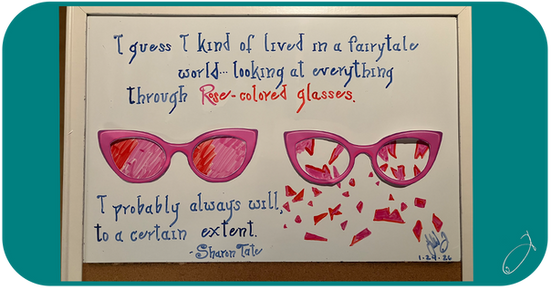 I guess I kind of lived in a fairytale
world... looking at everything
through Rose-colored glasses.
I probably always will,
to a certain extent.
-Sharon Tate
1.24.26